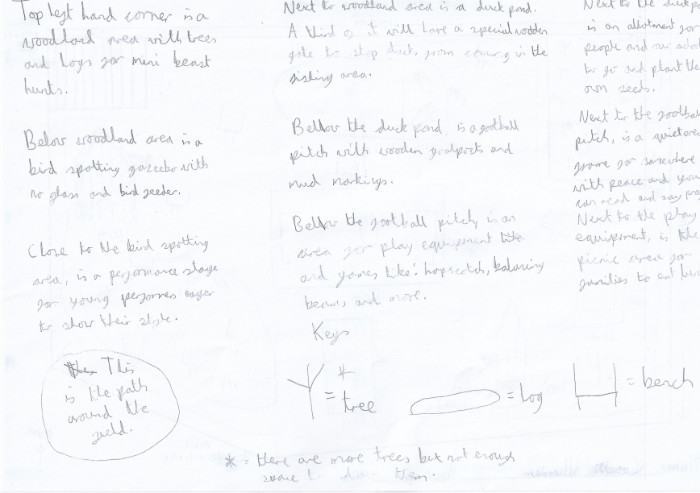 Top left hand corner is a
woodland area with trees
and logs for mini beast
hunts.
Below woodland area is a
bird spotting gazeebo with
no glass and bird feeder.
Close to the bird spotting
area, is a performance stage
for young performers eager
to show their style.
This
is the path
around the
field.
Next to woodland area is a duck pond.
A third of it will have a special wooden
gate to stop ducks from coming in the
fishing area.
Bellow the duck pond, is a football
pitch with wooden goalposts and
mud markings.
Bellow the football pitch, is an
area for play equipment like
and games like: hopscotch, balancing
beams and more.
Next to the duck p
is an allotment for
people and
to go and plant the
own seeds.
Next to the footba
pitch, is a quieter
for somewhere
with peace and you
can read and say
Next to the play
equipment, is the
picnic area for
families to eat
Keys
*
= tree
= log
= bench
* = there are more trees but not enough
space to draw them.